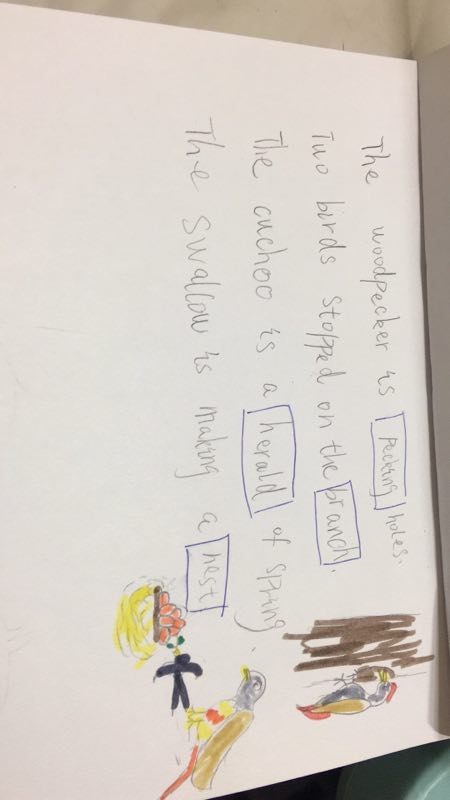 The woodpecker is pecking holes.
Two birds stopped on the branch.
The cuchoo is a herald of spring.
The swallow is making a nest